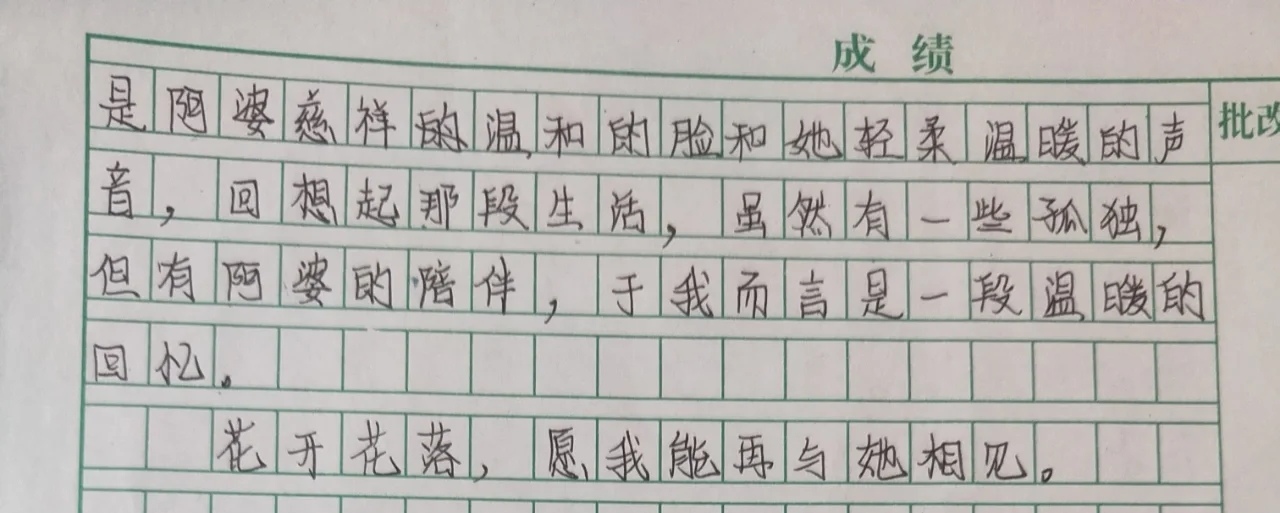 成绩
批改
是阿婆慈祥的温和的脸和她轻柔温暖的声
音，回想起那段生活，虽然有一些孤独，
但有阿婆的陪伴，于我而言是一段温暖的
回忆。
花开花落，愿我能再与她相见。